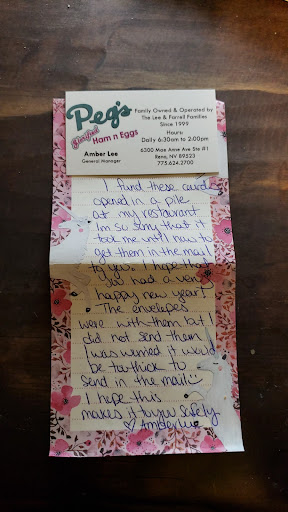 Peg's
Glorified
Ham n Eggs
Amber Lee
General Manager
Family Owned & Operated by
The Lee & Farrell Families
Since 1999
Hours:
Daily 6:30am to 2:00pm
6300 Mae Anne Ave Ste #1
Reno, NV 89523
775.624.2700
I fund these cards
opened in a pile
at my restaurant.
Im so sorry that it
took me until now to
get them in the mail
to you. I hope that
you had a very
happy new year!
The envelopes
were with them but I
did not send them
I was worried it would
be too thick to
send in the mail :)
I hope this
makes it to you safely
♡ Amber Lee